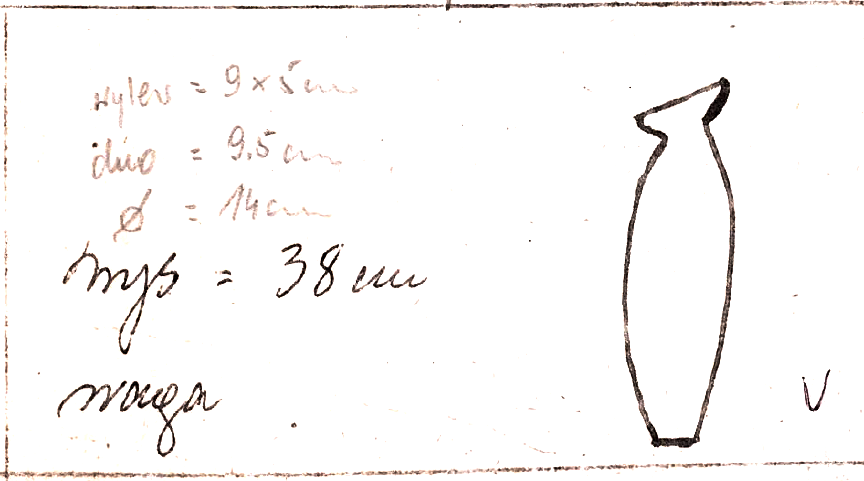 wylew = 9 x 5 cm
dno = 9.5 cm
ø = 14 cm
wys = 38 cm
waga
V